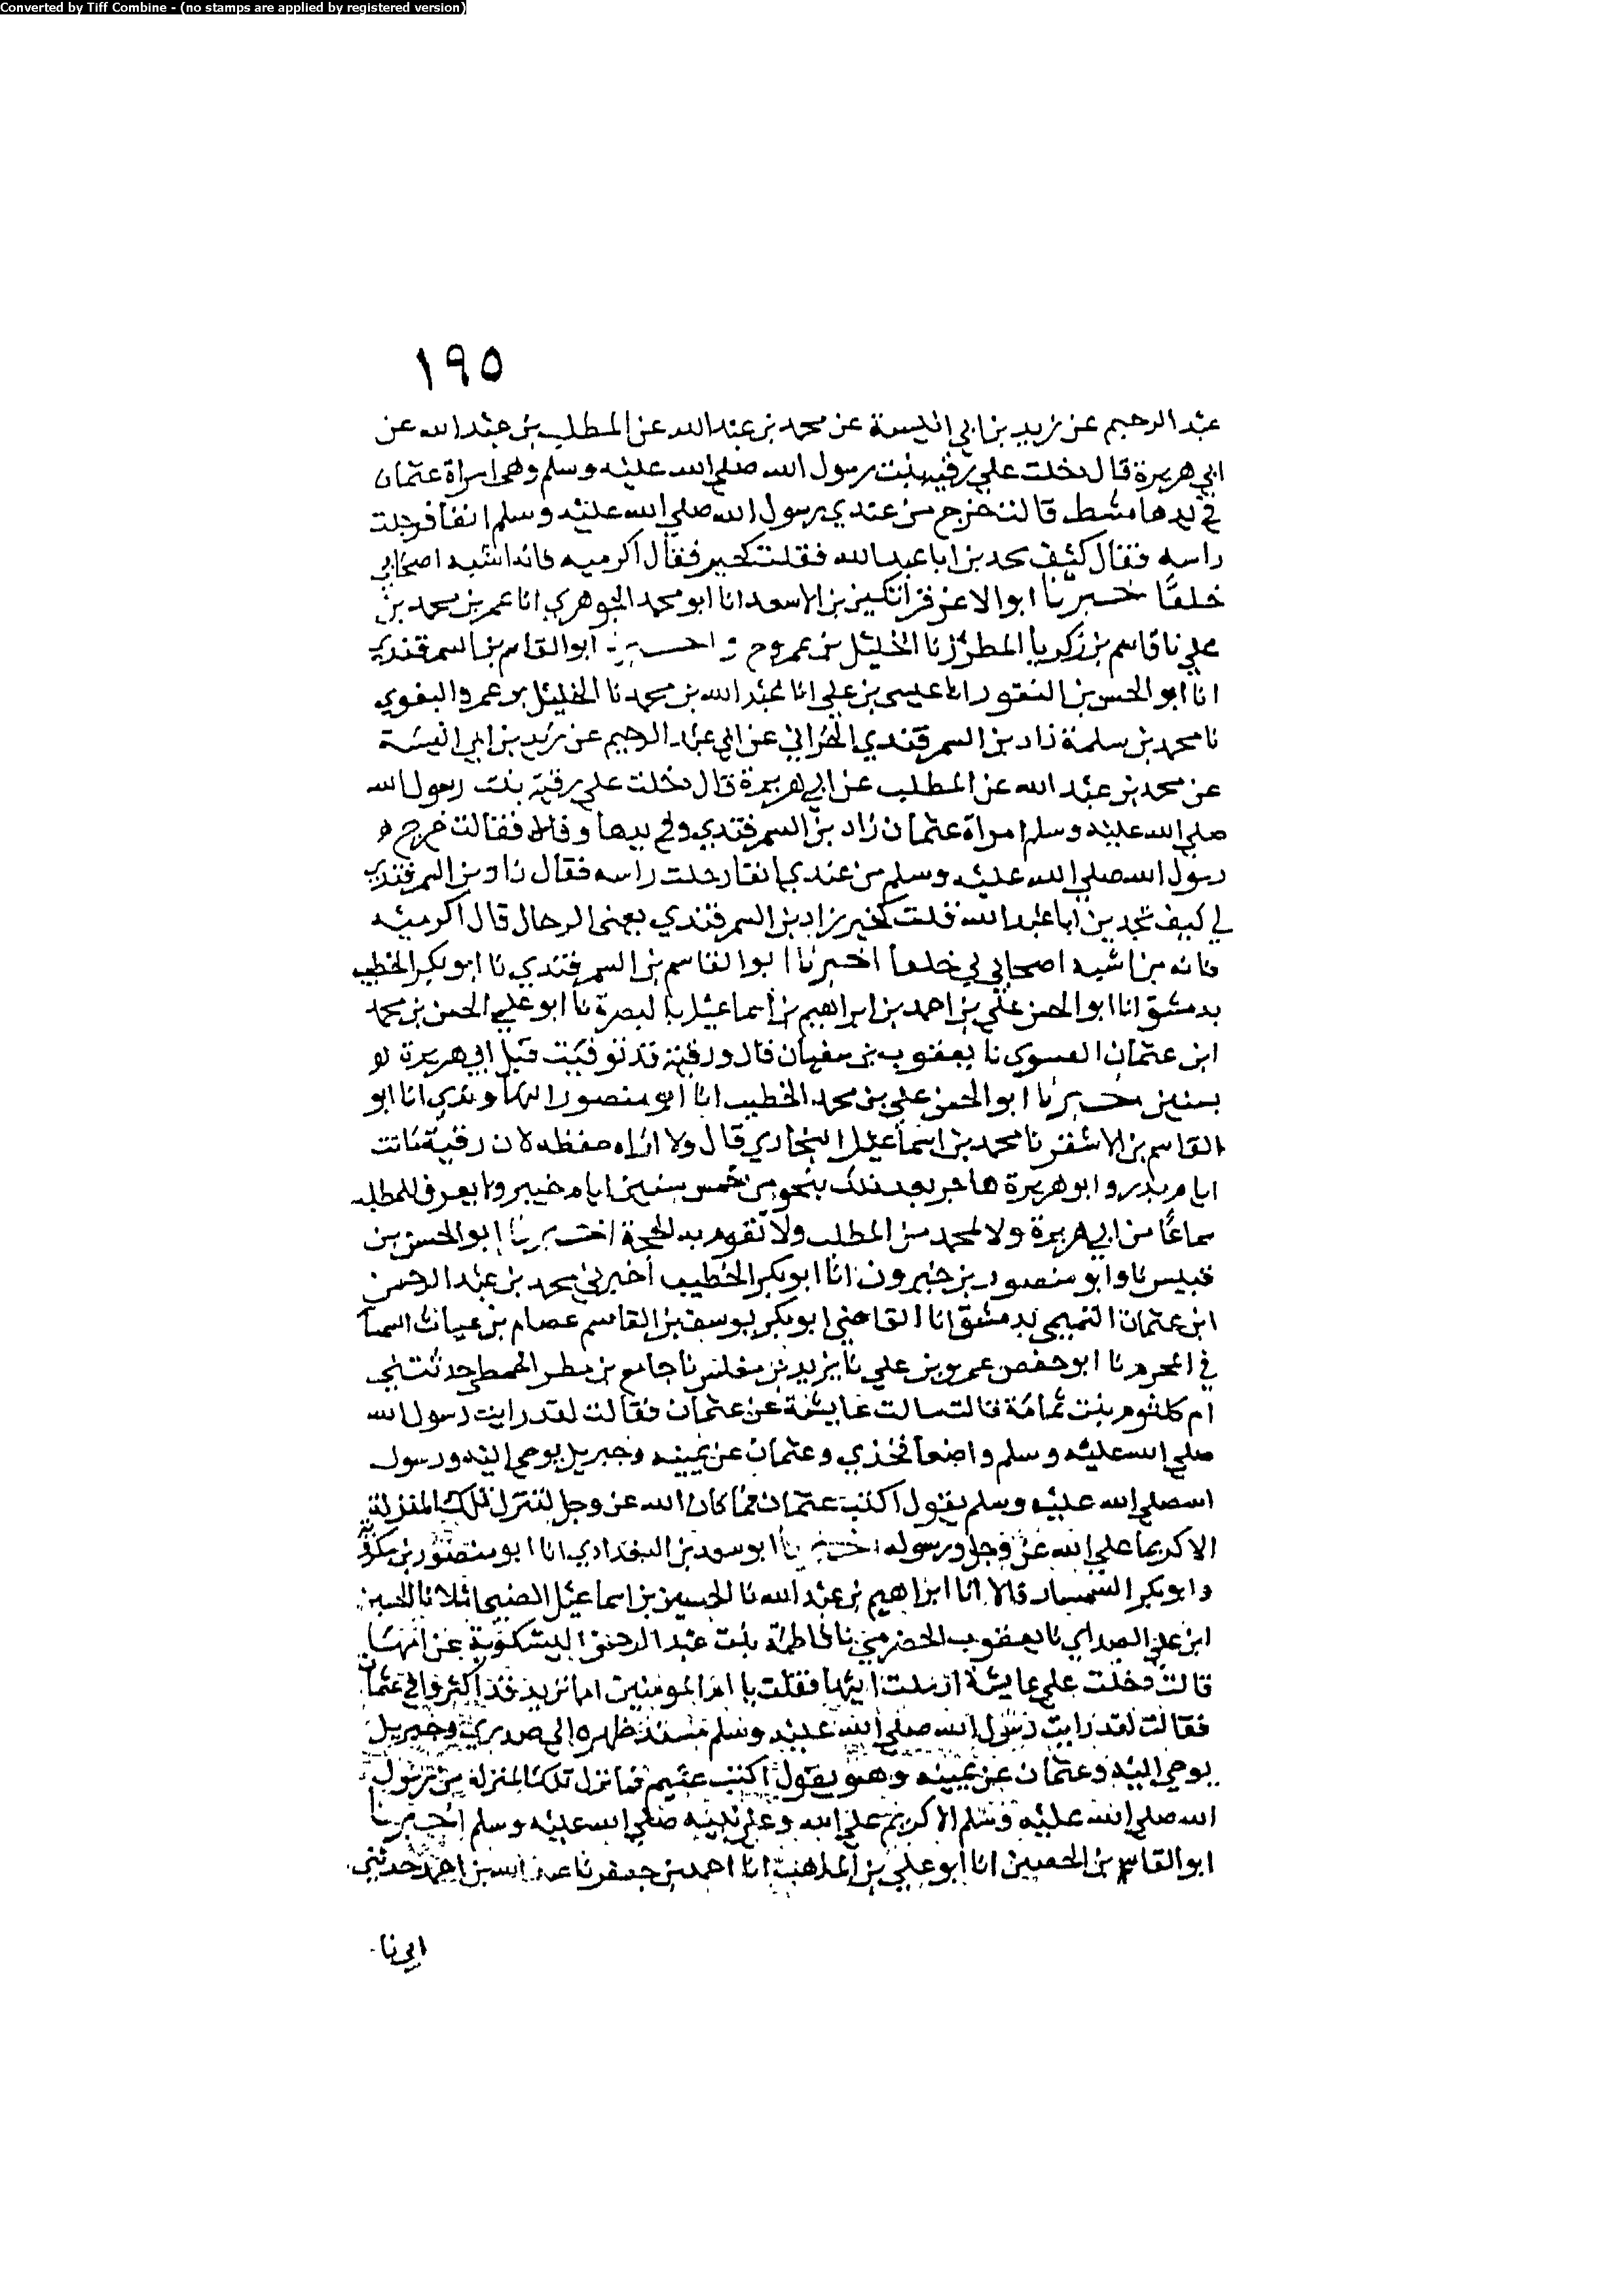 Converted by Tiff Combine - (no stamps are applied by registered version)
١٩٥
عبد الرحيم عن زيد بن ابي انيسة عن محمد بن عبد الله عن المطلب بن عبد الله عن
ابي هريرة قال دخلت علي رقية بنت رسول الله صلي الله عليه وسلم وهي امراة عثمان
في يدها مشط قالت خرج من عندي رسول الله صلي الله عليه وسلم انفا فرجلت
راسه فقال كيف تجدين ابا عبد الله فقلت كخير فقال اكرميه فانه اشبه اصحابي
خلقا اخبرنا ابو الاعز قراتكين بن الاسعد انا ابو محمد الجوهري انا عمر بن محمد بن
علي نا قاسم بن زكريا المطرز نا الخليل بن عمرو ح و اخبرنا ابو القاسم بن السمرقندي
انا ابو الحسن بن النقور انا عيسي بن علي انا عبد الله بن محمد نا الخليل بن عمرو البغوي
نا محمد بن سلمة زاد بن السمرقندي الحراني عن ابي عبد الرحيم عن زيد بن ابي انيسة
عن محمد بن عبد الله عن المطلب عن ابي هريرة قال دخلت علي رقية بنت رسول الله
صلي الله عليه وسلم امراة عثمان زاد بن السمرقندي وفي يدها وقالا فقالت خرج
رسول الله صلي الله عليه وسلم من عندي انفا رجلت راسه فقال زاد بن السمرقندي
لي كيف تجدين ابا عبد الله قلت كخير زاد بن السمرقندي يعني الرجال قال اكرميه
فانه من اشبه اصحابي بي خلقا اخبرنا ابو القاسم بن السمرقندي نا ابو بكر الخطيب
بدمشق انا ابو الحسن علي بن احمد بن ابراهيم بن اسماعيل بالبصرة نا ابو علي الحسن بن محمد
ابن عثمان الفسوي نا يعقوب بن سفيان قال ورقية قد توفيت قبل ابي هريرة
بسنين اخبرنا ابو الحسن علي بن محمد الخطيب انا ابو منصور النهاوندي انا ابو
القاسم بن الاشقر نا محمد بن اسماعيل البخاري قال ولا اراه حفظه لان رقية ماتت
ايام بدر وابو هريرة هاجر بعد ذلك بنحو من خمس سنين ايام خيبر ولا يعرف للمطلب
سماعا من ابي هريرة ولا لمحمد من المطلب ولا تقوم به الحجة اخبرنا ابو الحسن بن
قبيس نا وابو منصور بن خيرون انا ابو بكر الخطيب اخبرني محمد بن عبد الرحمن
ابن عثمان التميمي بدمشق انا القاضي ابو بكر يوسف بن القاسم عصام بن غياث السما
في المحرم نا ابو حفص عمرو بن علي نا يزيد بن مغلس نا جامع بن مطر الحبطي حدثتني
ام كلثوم بنت ثمامة قالت سالت عايشة عن عثمان فقالت لقد رايت رسول الله
صلي الله عليه وسلم واضعا فخذي وعثمان عن يمينه وجبريل يوحي اليه ورسول
الله صلي الله عليه وسلم يقول اكتب عثمان فما كان الله عز وجل لتنزل تلك المنزلة
الا كريما علي الله عز وجل ورسوله اخبرنا ابو سعد بن البغدادي انا ابو منصور بن شكرويه
وابو بكر السمسار قالا انا ابراهيم بن عبد الله نا الحسين بن اسماعيل الضبي املانا الحسين
ابن علي الصداي نا يعقوب الحضرمي نا فاطمة بنت عبد الرحمن اليشكرية عن امها
قالت دخلت علي عايشة ارسلت اليها فقلت يا ام المومنين اما تريد قد اكثروا في عثمان
فقالت لقد رايت رسول الله صلي الله عليه وسلم مسند ظهره الي صدري وجبريل
يوحي اليه وعثمان عن يمينه وهو يقول اكتب عثيم فما نزل تلك المنزلة من رسول
الله صلي الله عليه وسلم الا كريم علي الله وعلي نبيه صلي الله عليه وسلم اخبرنا
ابو القاسم بن الحصين انا ابو علي بن المذهب انا احمد بن جعفر نا عبد الله بن احمد حدثني
ابي نا